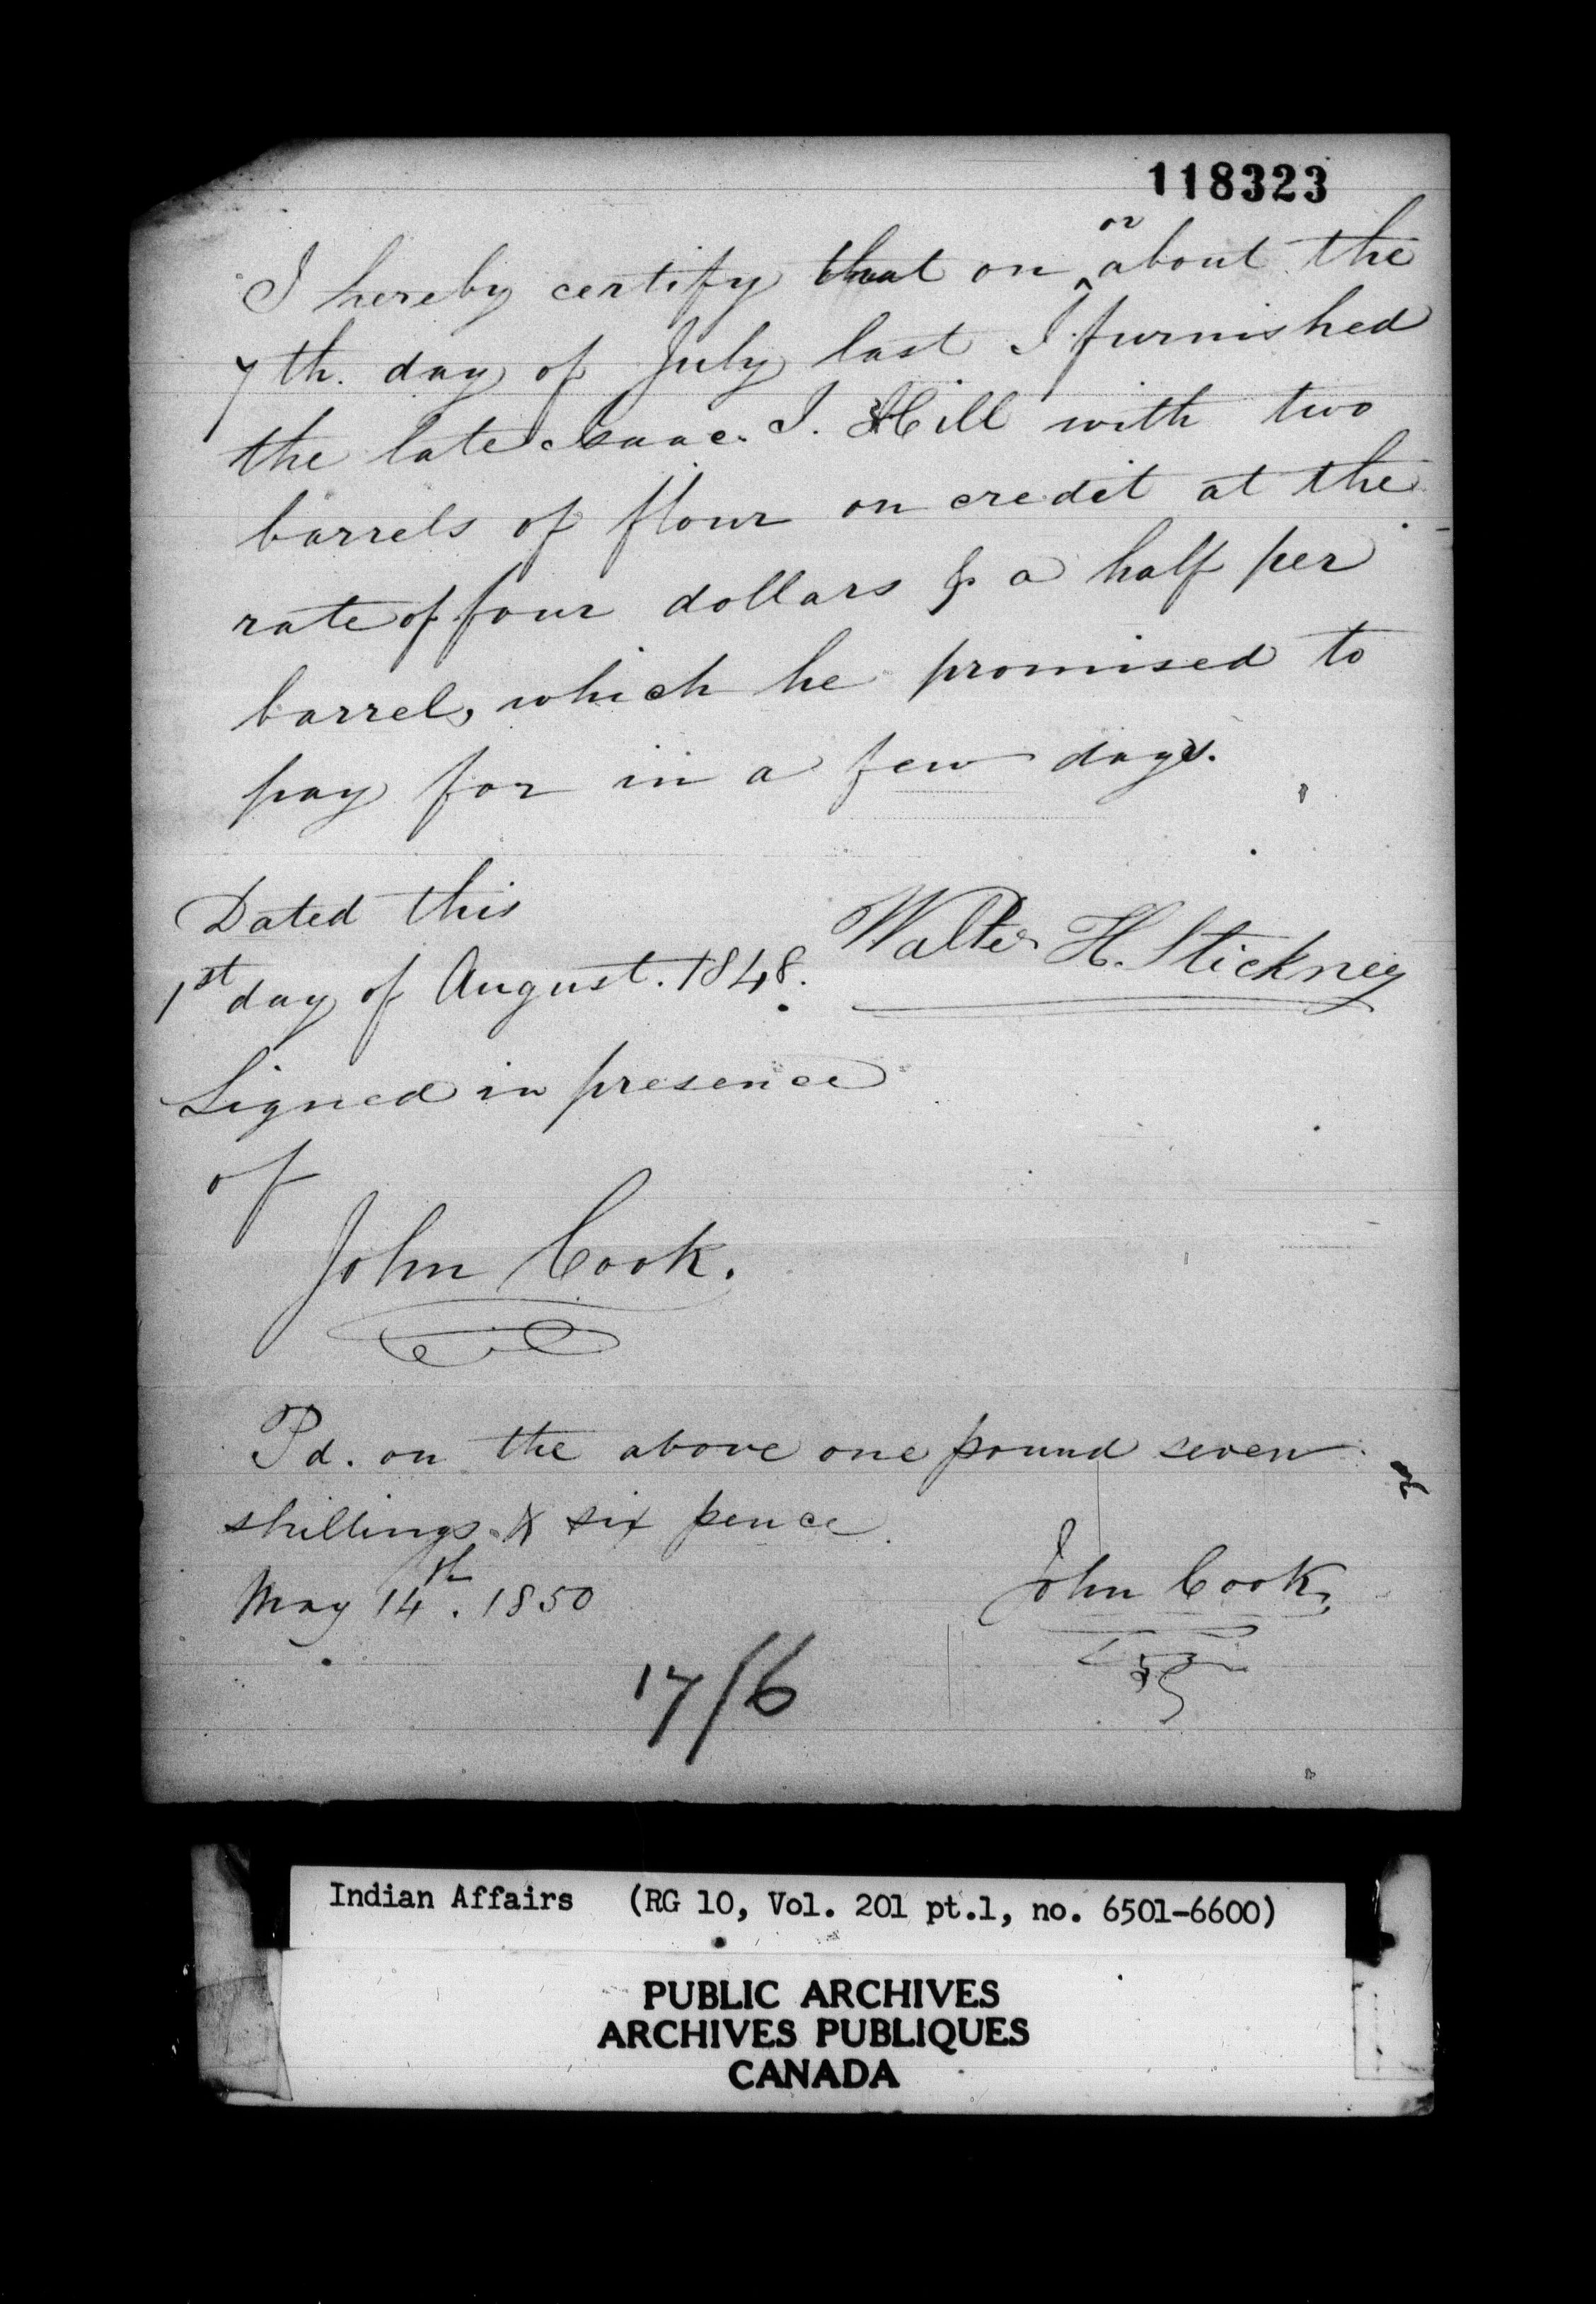 118323
I hereby certify that on or about the
7th. day of July last I furnished
the late Isaac. I. Hill with two
barrels of flour on credit at the
rate of four dollars & a half per
barrel, which he promised to
pay for in a few days.
Dated this
1st day of August. 1848. Walter H. Stickney
Signed in presence
of
John Cook.
Pd. on the above one pound seven
shillings & six pence
May 14th. 1850 John Cook,
17/6
Indian Affairs (RG 10, Vol. 201 pt.1, no. 6501-6600)
PUBLIC ARCHIVES
ARCHIVES PUBLIQUES
CANADA